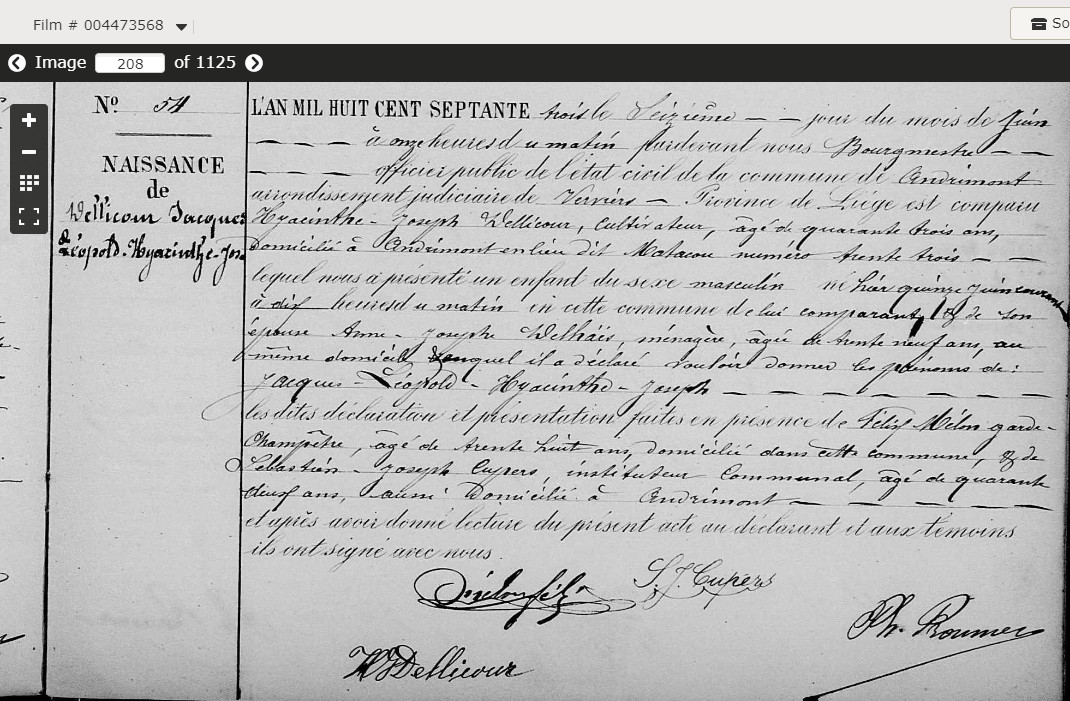 Film # 004473568
So
Image 208 of 1125
Nº 54
NAISSANCE
de
Dellicour Jacques
Léopold-Hyacinthe-Jos
L'AN MIL HUIT CENT SEPTANTE trois le Seizième — — jour du mois de Juin
— — — à onze heures du matin pardevant nous Bourgmestre — —
— — — — officier public de l'état civil de la commune de Andrimont
arrondissement judiciaire de Verviers — Province de Liége est comparu
Hyacinthe-Joseph Dellicour, cultivateur, âgé de quarante trois ans,
domicilié à Andrimont en lieu dit numéro trente trois — —
lequel nous a présenté un enfant du sexe masculin né hier quinze Juin courant
à dix heures du matin en cette commune de lui comparant, & de son
épouse Anne-Joseph ménagère, âgée de trente neuf ans, au
même domicile auquel il a déclaré vouloir donner les prénoms de :
Jacques-Léopold-Hyacinthe-Joseph — — — — — — —
les dites déclaration et présentation faites en présence de Félix Mélon garde-
Champêtre, âgé de trente huit ans, domicilié dans cette commune, & de
Sébastien-Joseph Cupers, instituteur Communal, âgé de quarante
deux ans, aussi domicilié à Andrimont — — — — — —
et après avoir donné lecture du présent acte au déclarant et aux témoins
ils ont signé avec nous.
S. J. Cupers
Mélon félix
Ph.
HJ Dellicour